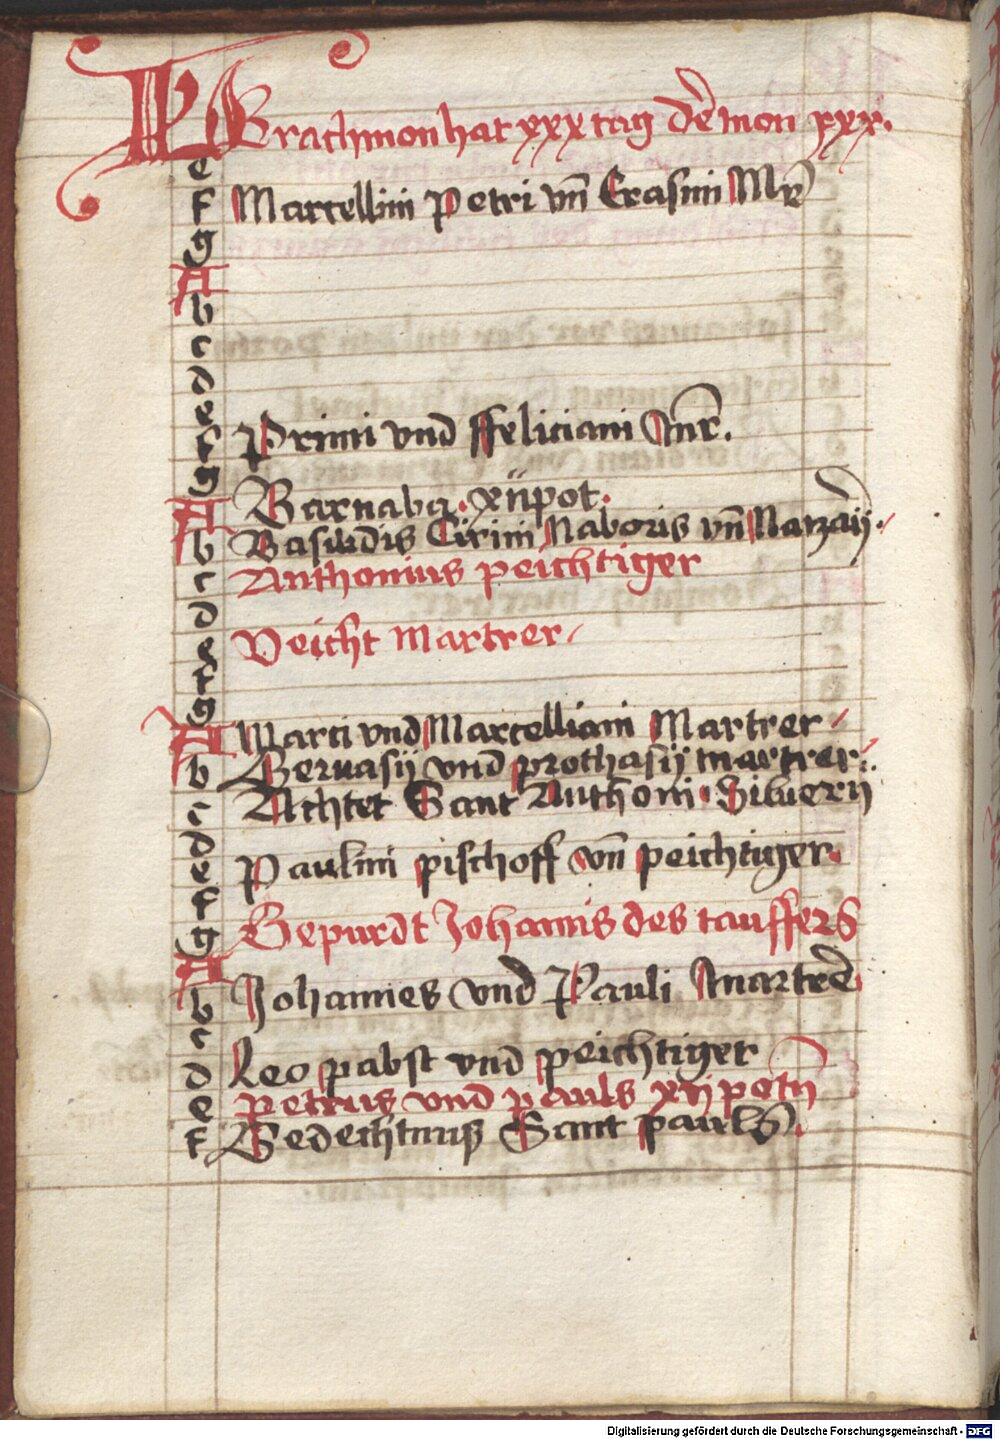 KL Brachmon hat xxx tag der mon xxx.
e
f Marcellini Petri vnd Erasmi Mr
g
A
b
c
d
e
f Primi vnd ffeliciani Mr.
g
A Barnaba. xiipot.
b Basilidis Cirini Naboris vnd Nazarij.
c Anthonius peichtiger
d
e Veicht Martrer
f
g
A Marci vnd Marcelliani Martrer
b Geruasij vnd prothasij martrer.
c Achtet Sant Anthoni. Siluerij
d
e Paulini pischoff vnd peichtiger.
f
g Gepurdt Johannis des tauffers
A
b Johannes vnd Pauli Martrer
c
d Leo pabst vnd peichtiger
e Petrus vnd pauls xij potn
f Gedechtnus Sant pauls.
Digitalisierung gefördert durch die Deutsche Forschungsgemeinschaft - DFG